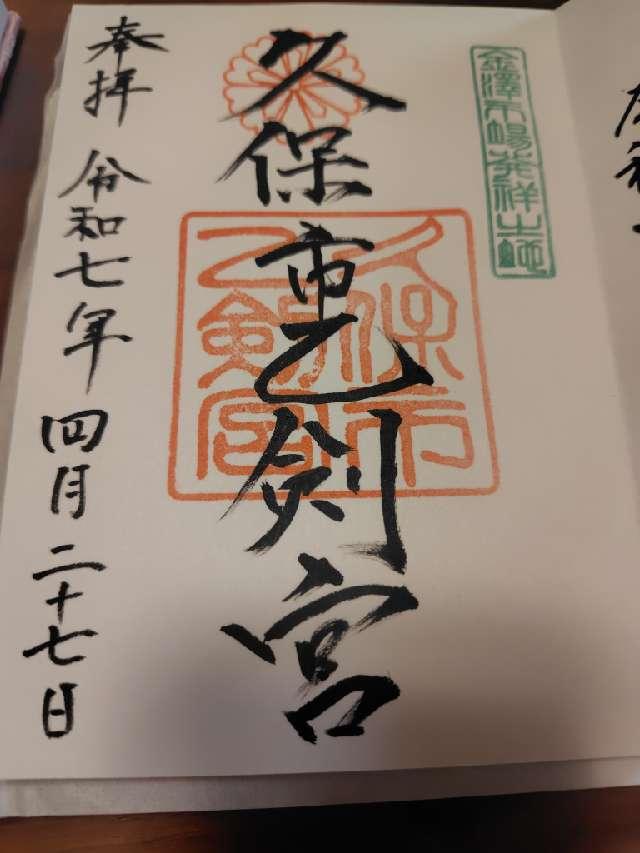 金澤市場発祥之地
久保市乙剣宮
久保市
乙剣宮
奉拝 令和七年 四月二十七日